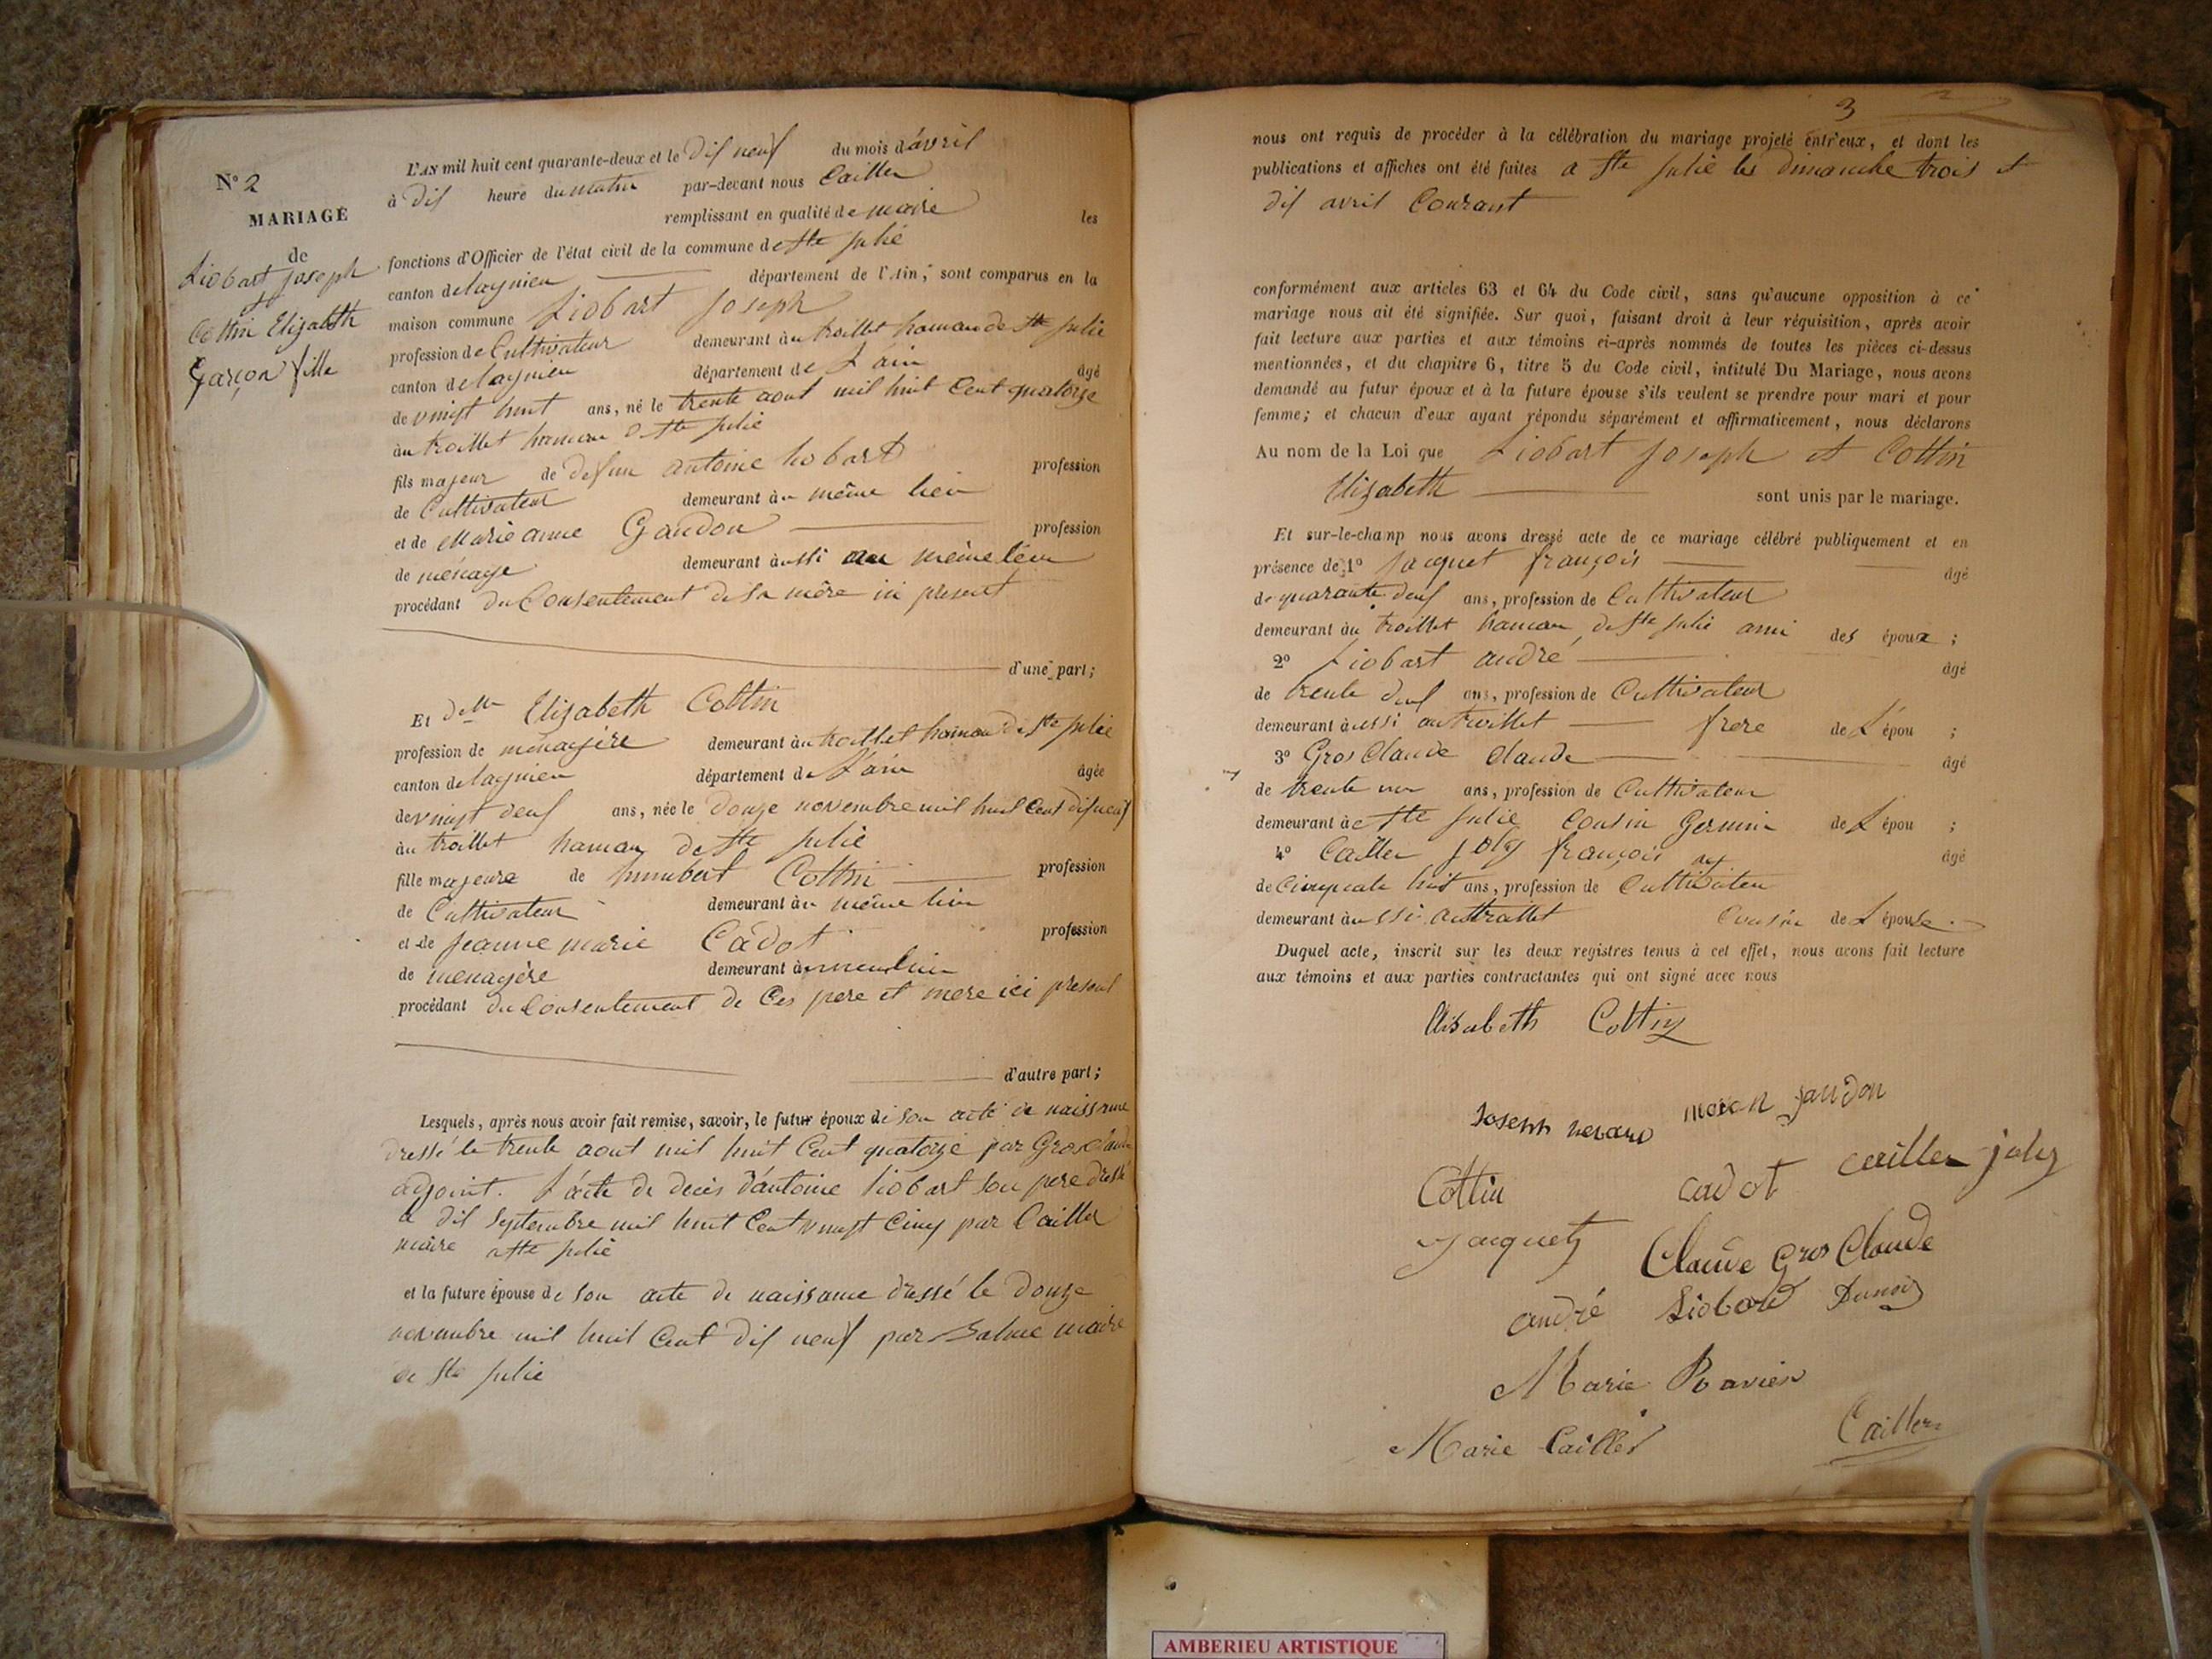 N° 2
MARIAGE
de
Liobart joseph
et
Cottin Elizabeth
Garçon fille
L'AN mil huit cent quarante-deux et le dix neuf du mois d'avril
à dix heure du matin par-devant nous Cailler
remplissant en qualité de maire les
fonctions d'Officier de l'état civil de la commune de Ste julie
canton de lagnieu département de l'Ain, sont comparus en la
maison commune Liobart joseph
profession de Cultivateur demeurant au trollet hamau de Ste julie
canton de lagnieu département de L'ain âgé
de vingt huit ans, né le trente aout mil huit Cent quatorze
au trollet hamau de Ste julie
fils majeur de defun antoine liobart profession
de Cultivateur demeurant au même lieu
et de Marie anne Gandon profession
de ménage demeurant aussi au même lieu
procédant du Consentement de sa mère ici present
d'une part;
Et delle Elizabeth Cottin
profession de ménagère demeurant au trollet hamau de Ste julie
canton de lagnieu département de L'ain âgée
de vingt deux ans, née le douze novembre mil huit Cent dix neuf
au trollet hamau de Ste julie
fille majeure de humbert Cottin profession
de Cultivateur demeurant au même lieu
et de jeanne marie Cadot profession
de menagère demeurant à
procédant du Consentement de Ces pere et mere ici present
d'autre part;
Lesquels, après nous avoir fait remise, savoir, le futur époux de son acte de naissance
dressé le trente aout mil huit Cent quatorze par Grosclaude
adjoint. L'acte de decès d'antoine liobart son pere dressé
a dix septembre mil huit Cent vingt cinq par Cailler
maire a Ste julie
et la future épouse de son acte de naissance dressé le douze
novembre mil huit Cent dix neuf par maire
de Ste julie
3
nous ont requis de procéder à la célébration du mariage projeté entr'eux, et dont les
publications et affiches ont été faites a Ste julie les dimanche trois et
dix avril Courant
conformément aux articles 63 et 64 du Code civil, sans qu'aucune opposition à ce
mariage nous ait été signifiée. Sur quoi, faisant droit à leur réquisition, après avoir
fait lecture aux parties et aux témoins ci-après nommés de toutes les pièces ci-dessus
mentionnées, et du chapitre 6, titre 5 du Code civil, intitulé Du Mariage, nous avons
demandé au futur époux et à la future épouse s'ils veulent se prendre pour mari et pour
femme; et chacun d'eux ayant répondu séparément et affirmativement, nous déclarons
Au nom de la Loi que Liobart joseph et Cottin
Elizabeth sont unis par le mariage.
Et sur-le-champ nous avons dressé acte de ce mariage célébré publiquement et en
présence de 1° jacquet françois âgé
de quarante deux ans, profession de Cultivateur
demeurant au trollet hamau de Ste julie ami des époux;
2° Liobart andré âgé
de trente deux ans, profession de Cultivateur
demeurant aussi au trollet frere de L'épou;
3° Gros Claude Claude âgé
de trente un ans, profession de Cultivateur
demeurant à Ste julie Cousin Germin de L'épou;
4° Cailler joly françois âgé
de Cinquante huit ans, profession de Cultivateu
demeurant aussi au trollet Cousin de L'épouse.
Duquel acte, inscrit sur les deux registres tenus à cet effet, nous avons fait lecture
aux témoins et aux parties contractantes qui ont signé avec nous
Elisabeth Cottin
Joseph gandon
Cottin cadot cailler joly
Jacquet Claude Gros Claude
andré Liobard
Marie Ravier
Marie Cailler Cailler
AMBERIEU ARTISTIQUE